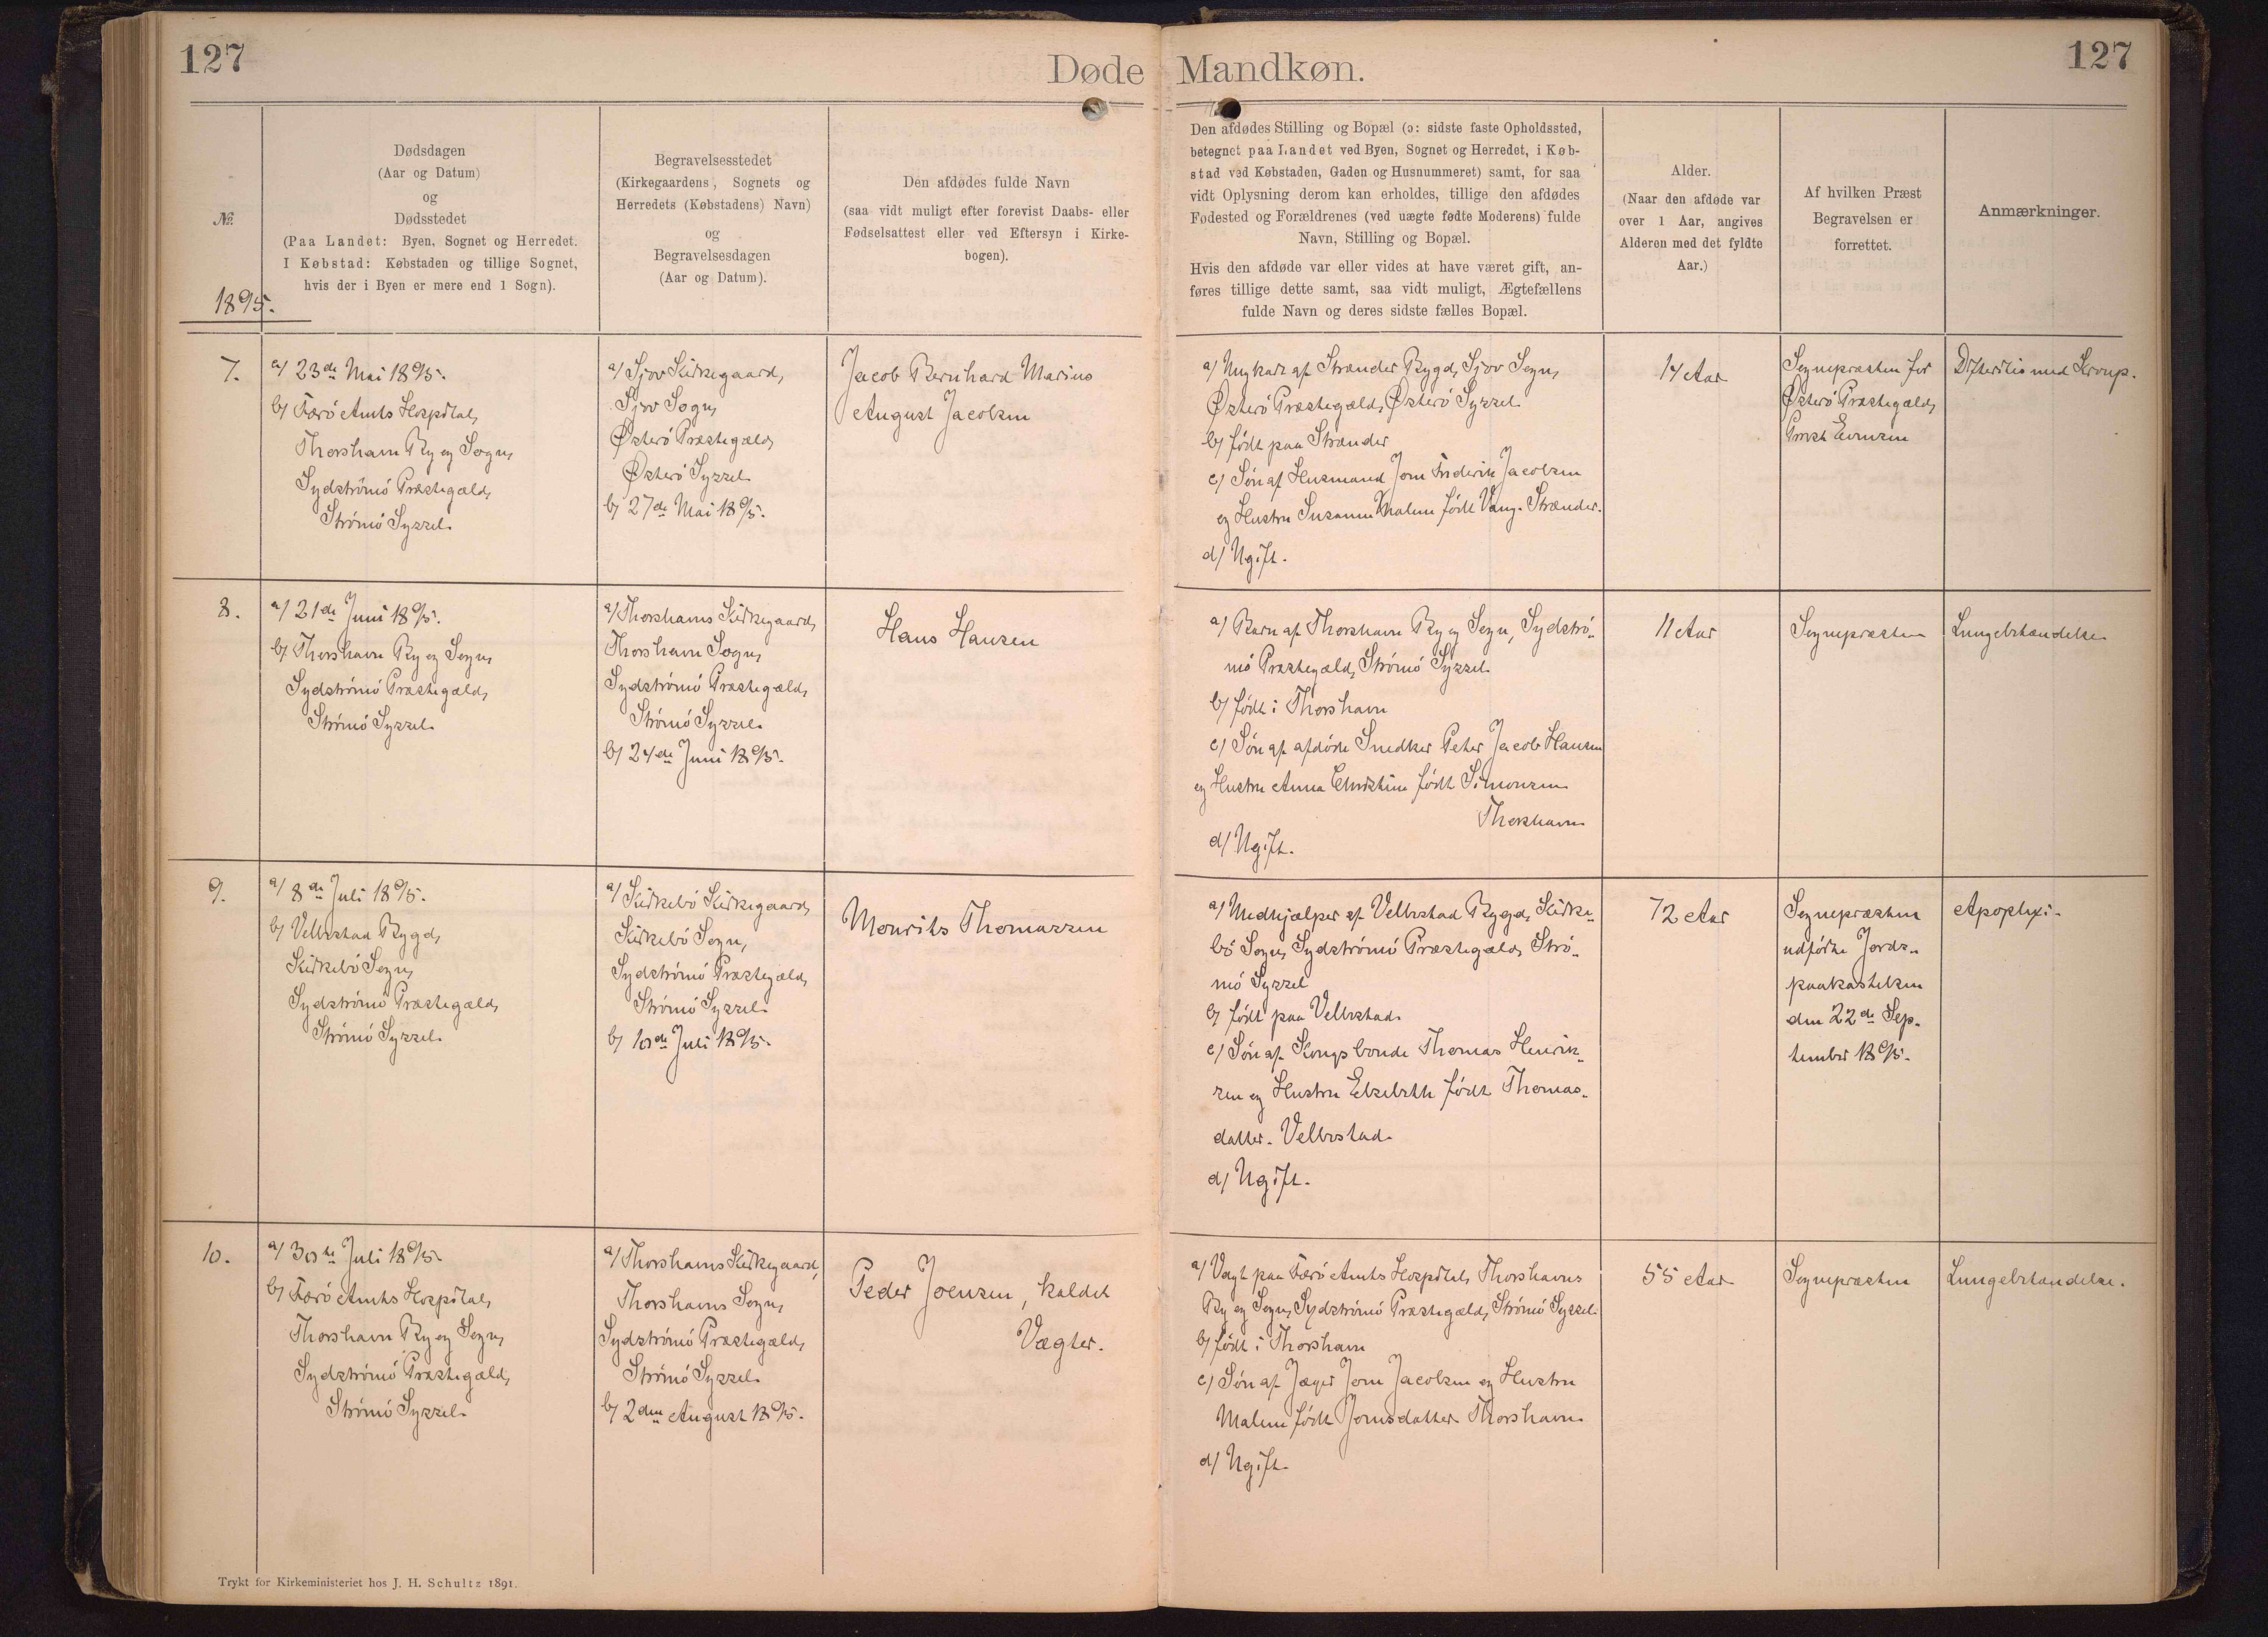 127
Døde Mandkøn.
127
№
1895.
Dødsdagen
(Aar og Datum)
og
Dødsstedet
(Paa Landet: Byen, Sognet og Herredet.
I Købstad: Købstaden og tillige Sognet,
hvis der i Byen er mere end 1 Sogn).
Begravelsesstedet
(Kirkegaardens, Sognets og
Herredets (Købstadens) Navn)
og
Begravelsesdagen
(Aar og Datum).
Den afdødes fulde Navn
(saa vidt muligt efter forevist Daabs- eller
Fødselsattest eller ved Eftersyn i Kirke-
bogen).
Den afdødes Stilling og Bopæl (ɔ: sidste faste Opholdssted,
betegnet paa Landet ved Byen, Sognet og Herredet, i Køb-
stad ved Købstaden, Gaden og Husnummeret) samt, for saa
vidt Oplysning derom kan erholdes, tillige den afdødes
Fødested og Forældrenes (ved uægte fødte Moderens) fulde
Navn, Stilling og Bopæl.
Hvis den afdøde var eller vides at have været gift, an-
føres tillige dette samt, saa vidt muligt, Ægtefællens
fulde Navn og deres sidste fælles Bopæl.
Alder.
(Naar den afdøde var
over 1 Aar, angives
Alderen med det fyldte
Aar.)
Af hvilken Præst
Begravelsen er
forrettet.
Anmærkninger.
7.
a) 23de Mai 1895.
b) Færö Amts Hospital,
Thorshavn By og Sogn,
Sydströmö Præstegæld,
Strömö Syssel.
a) Sjov Kirkegaard,
Sjov Sogn,
Österö Præstegæld,
Österö Syssel
b) 27de Mai 1895.
Jacob Bernhard Marius
August Jacobsen
a) Ungkarl af Strænder Bygd, Sjov Sogn,
Österö Præstegæld, Österö Syssel
b) født paa Strænder
c) Søn af Husmand Joen Frederik Jacobsen
og Hustru Susanne Malene født Vang. Strænder.
d) Ugift.
14 Aar
Sognepræsten for
Österö Præstegæld,
Provst Evensen
Difteritis med Kroup.
8.
a) 21de Juni 1895.
b) Thorshavn By og Sogn,
Sydströmö Præstegæld,
Strömö Syssel.
a) Thorshavns Kirkegaard,
Thorshavn Sogn,
Sydströmö Præstegæld,
Strömö Syssel.
b) 24de Juni 1895.
Hans Hansen
a) Barn af Thorshavn By og Sogn, Sydströ-
mö Præstegæld, Strömö Syssel
b) født i Thorshavn
c) Søn af afdøde Snedker Peter Jacob Hansen
og Hustru Anna Christine født Simonsen
Thorshavn
d) Ugift.
11 Aar
Sognepræsten
Lungebetændelse
9.
a) 8de Juli 1895.
b) Velbestad Bygd,
Kirkebö Sogn,
Sydströmö Præstegæld,
Strömö Syssel.
a) Kirkebö Kirkegaard,
Kirkebö Sogn,
Sydströmö Præstegæld,
Strömö Syssel.
b) 10de Juli 1895.
Mourits Thomassen
a) Medhjælper af Velbestad Bygd, Kirke-
bö Sogn, Sydströmö Præstegæld, Strö-
mö Syssel
b) født paa Velbestad.
c) Søn af Kongsbonde Thomas Henrik-
sen og Hustru Elsebeth født Thomas-
datter. Velbestad.
d) Ugift.
72 Aar
Sognepræsten
udførte Jords-
paakastelsen
den 22de Sep-
tember 1895.
Apoplexi.
10.
a) 30te Juli 1895.
b) Færö Amts Hospital,
Thorshavn By og Sogn,
Sydströmö Præstegæld,
Strömö Syssel.
a) Thorshavns Kirkegaard,
Thorshavns Sogn,
Sydströmö Præstegæld,
Strömö Syssel.
b) 2den August 1895.
Peder Joensen, kaldet
Vægter.
a) Vagt paa Færö Amts Hospital, Thorshavns
By og Sogn, Sydströmö Præstegæld, Strömö Syssel.
b) født i Thorshavn
c) Søn af Jæger Joen Jacobsen og Hustru
Malene født Joensdatter Thorshavn.
d) Ugift
55 Aar
Sognepræsten
Lungebetændelse.
Trykt for Kirkeministeriet hos J. H. Schultz 1891.